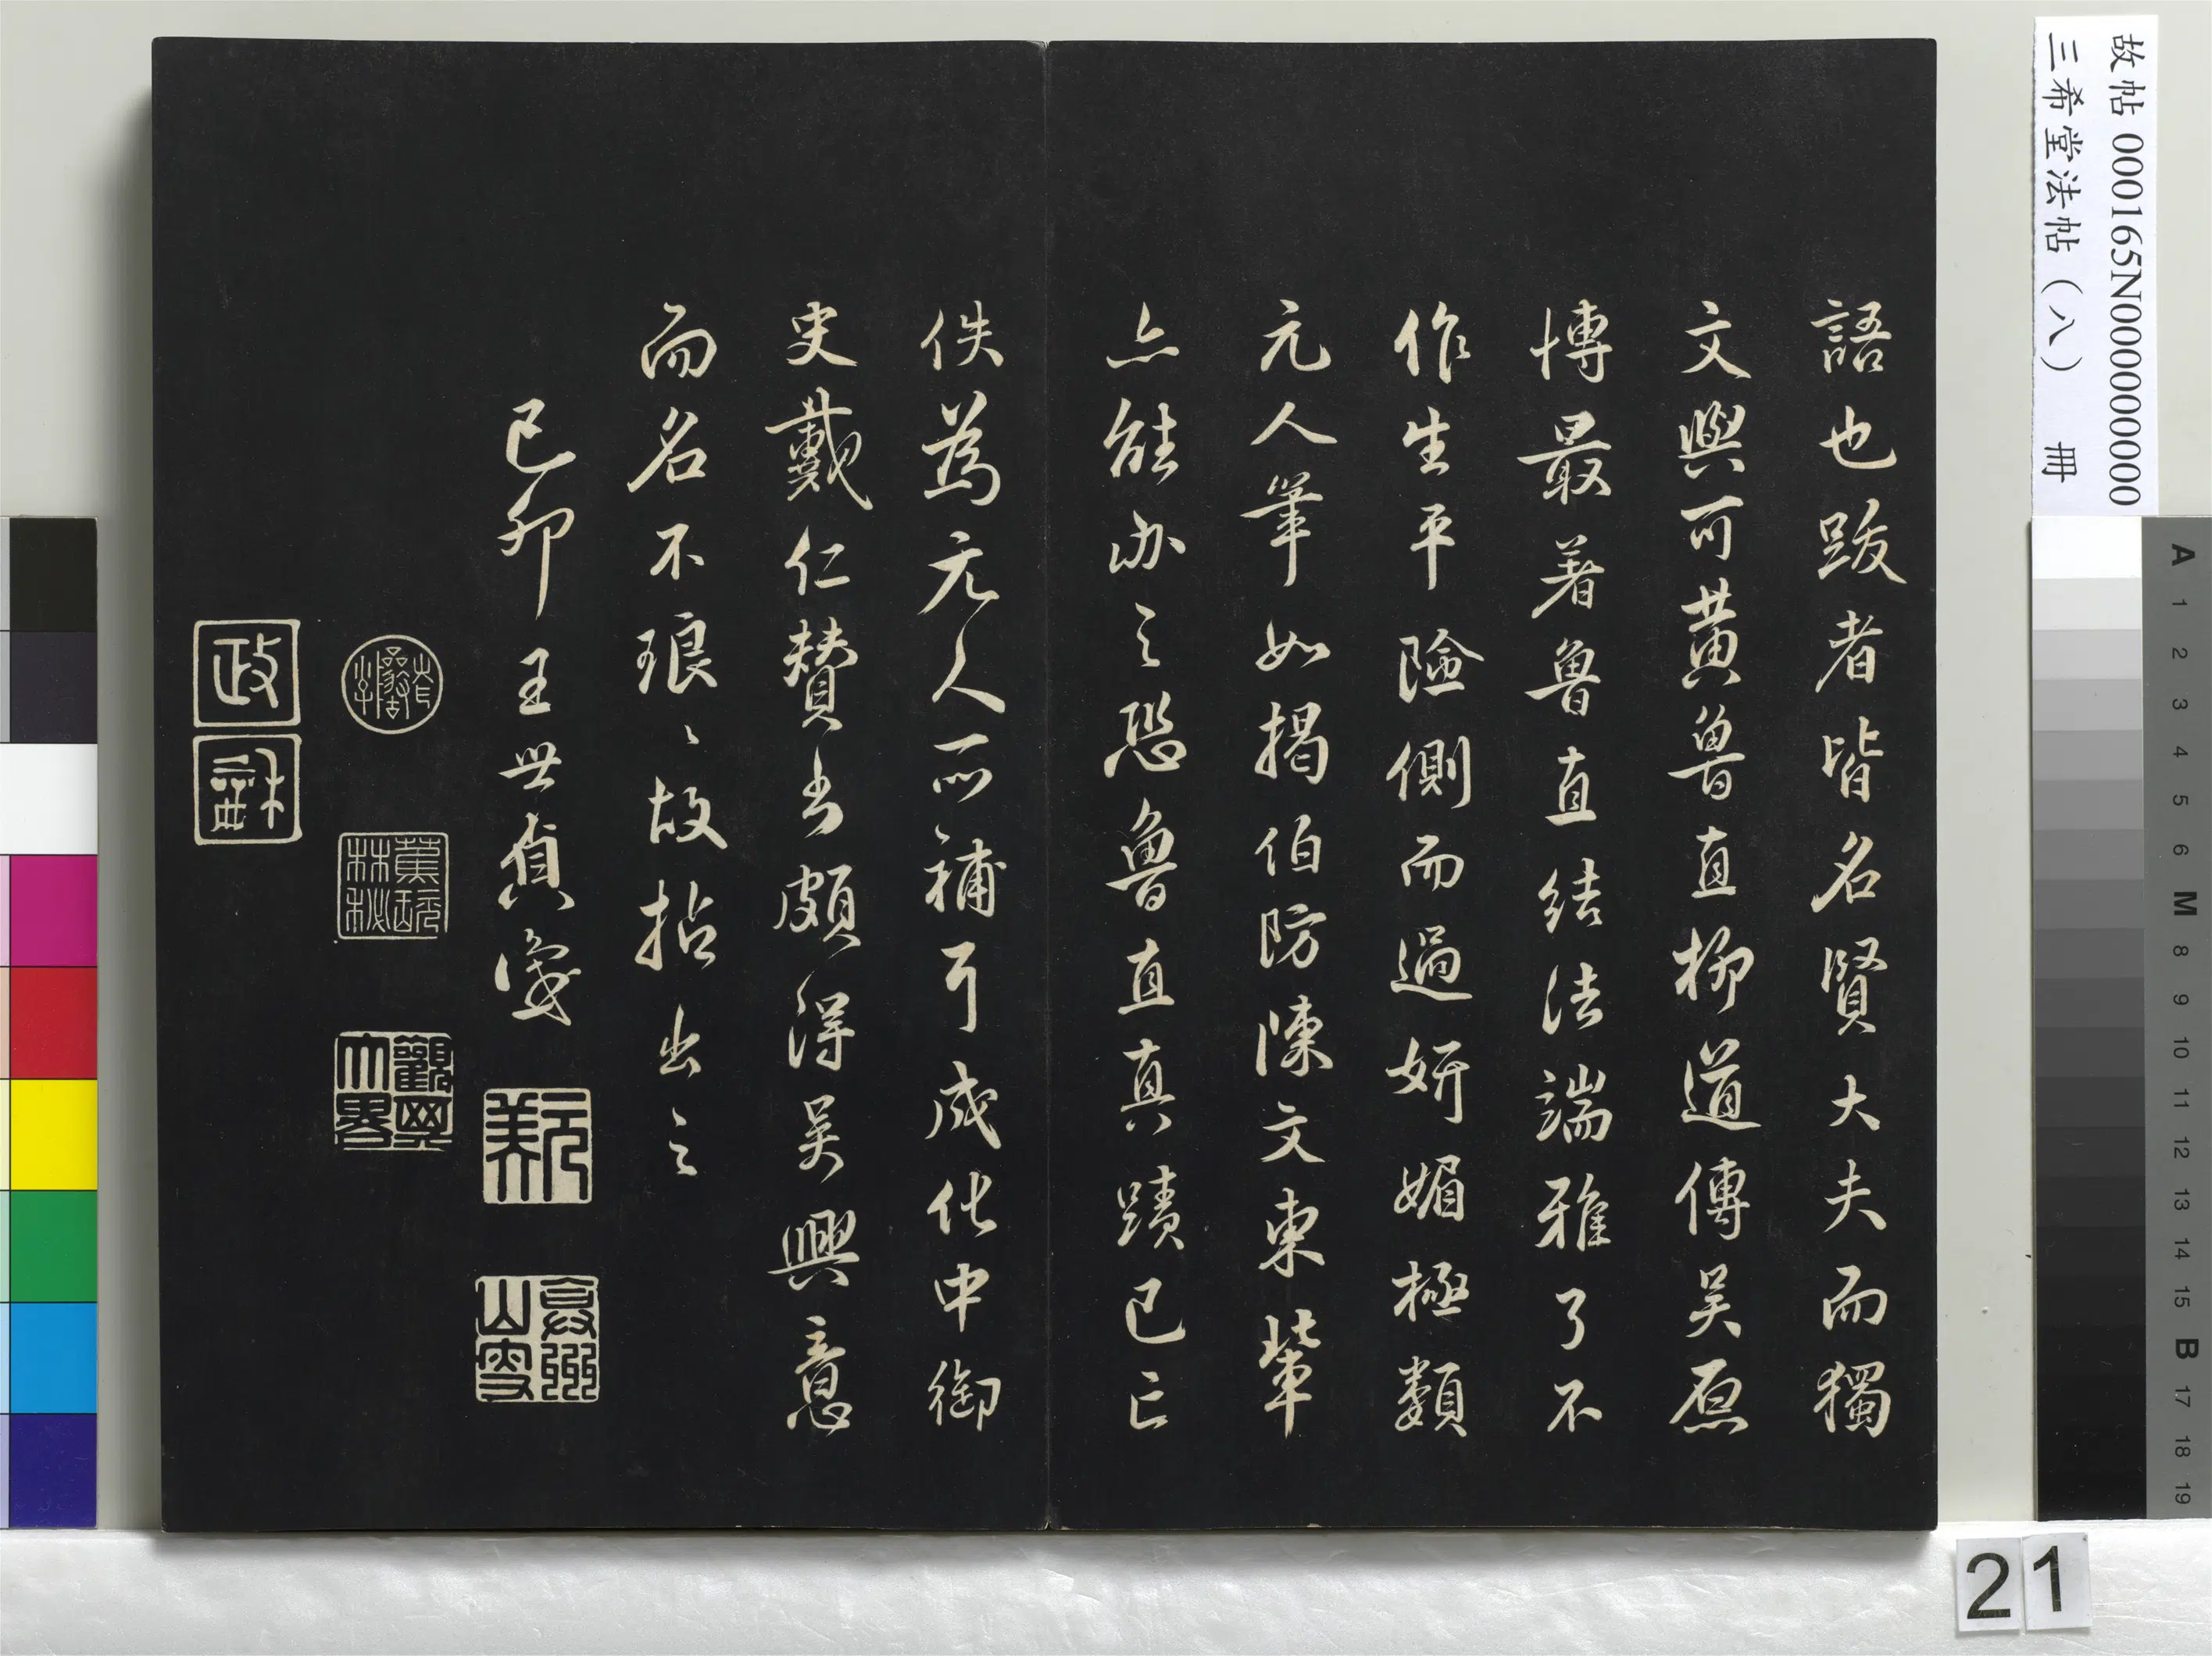 語也跋者皆名賢大夫而獨
文與可黃魯直柳道傳吳原
博最著魯直結法端雅了不
作生平險側而過妍媚極類
元人筆如揭伯防陳文東輩
亦能辦之恐魯直真蹟已亡
佚為元人所補耳成化中御
史戴仁贊書頗得吳興意
而名不琅〻故拈出之
己卯王世貞識
元美
蕉林秘玩
觀其大略
政
故帖 000165N000000000
三希堂法帖（八） 冊
21
A 1 2 3 4 5 6 M 8 9 10 11 12 13 14 15 B 17 18 19